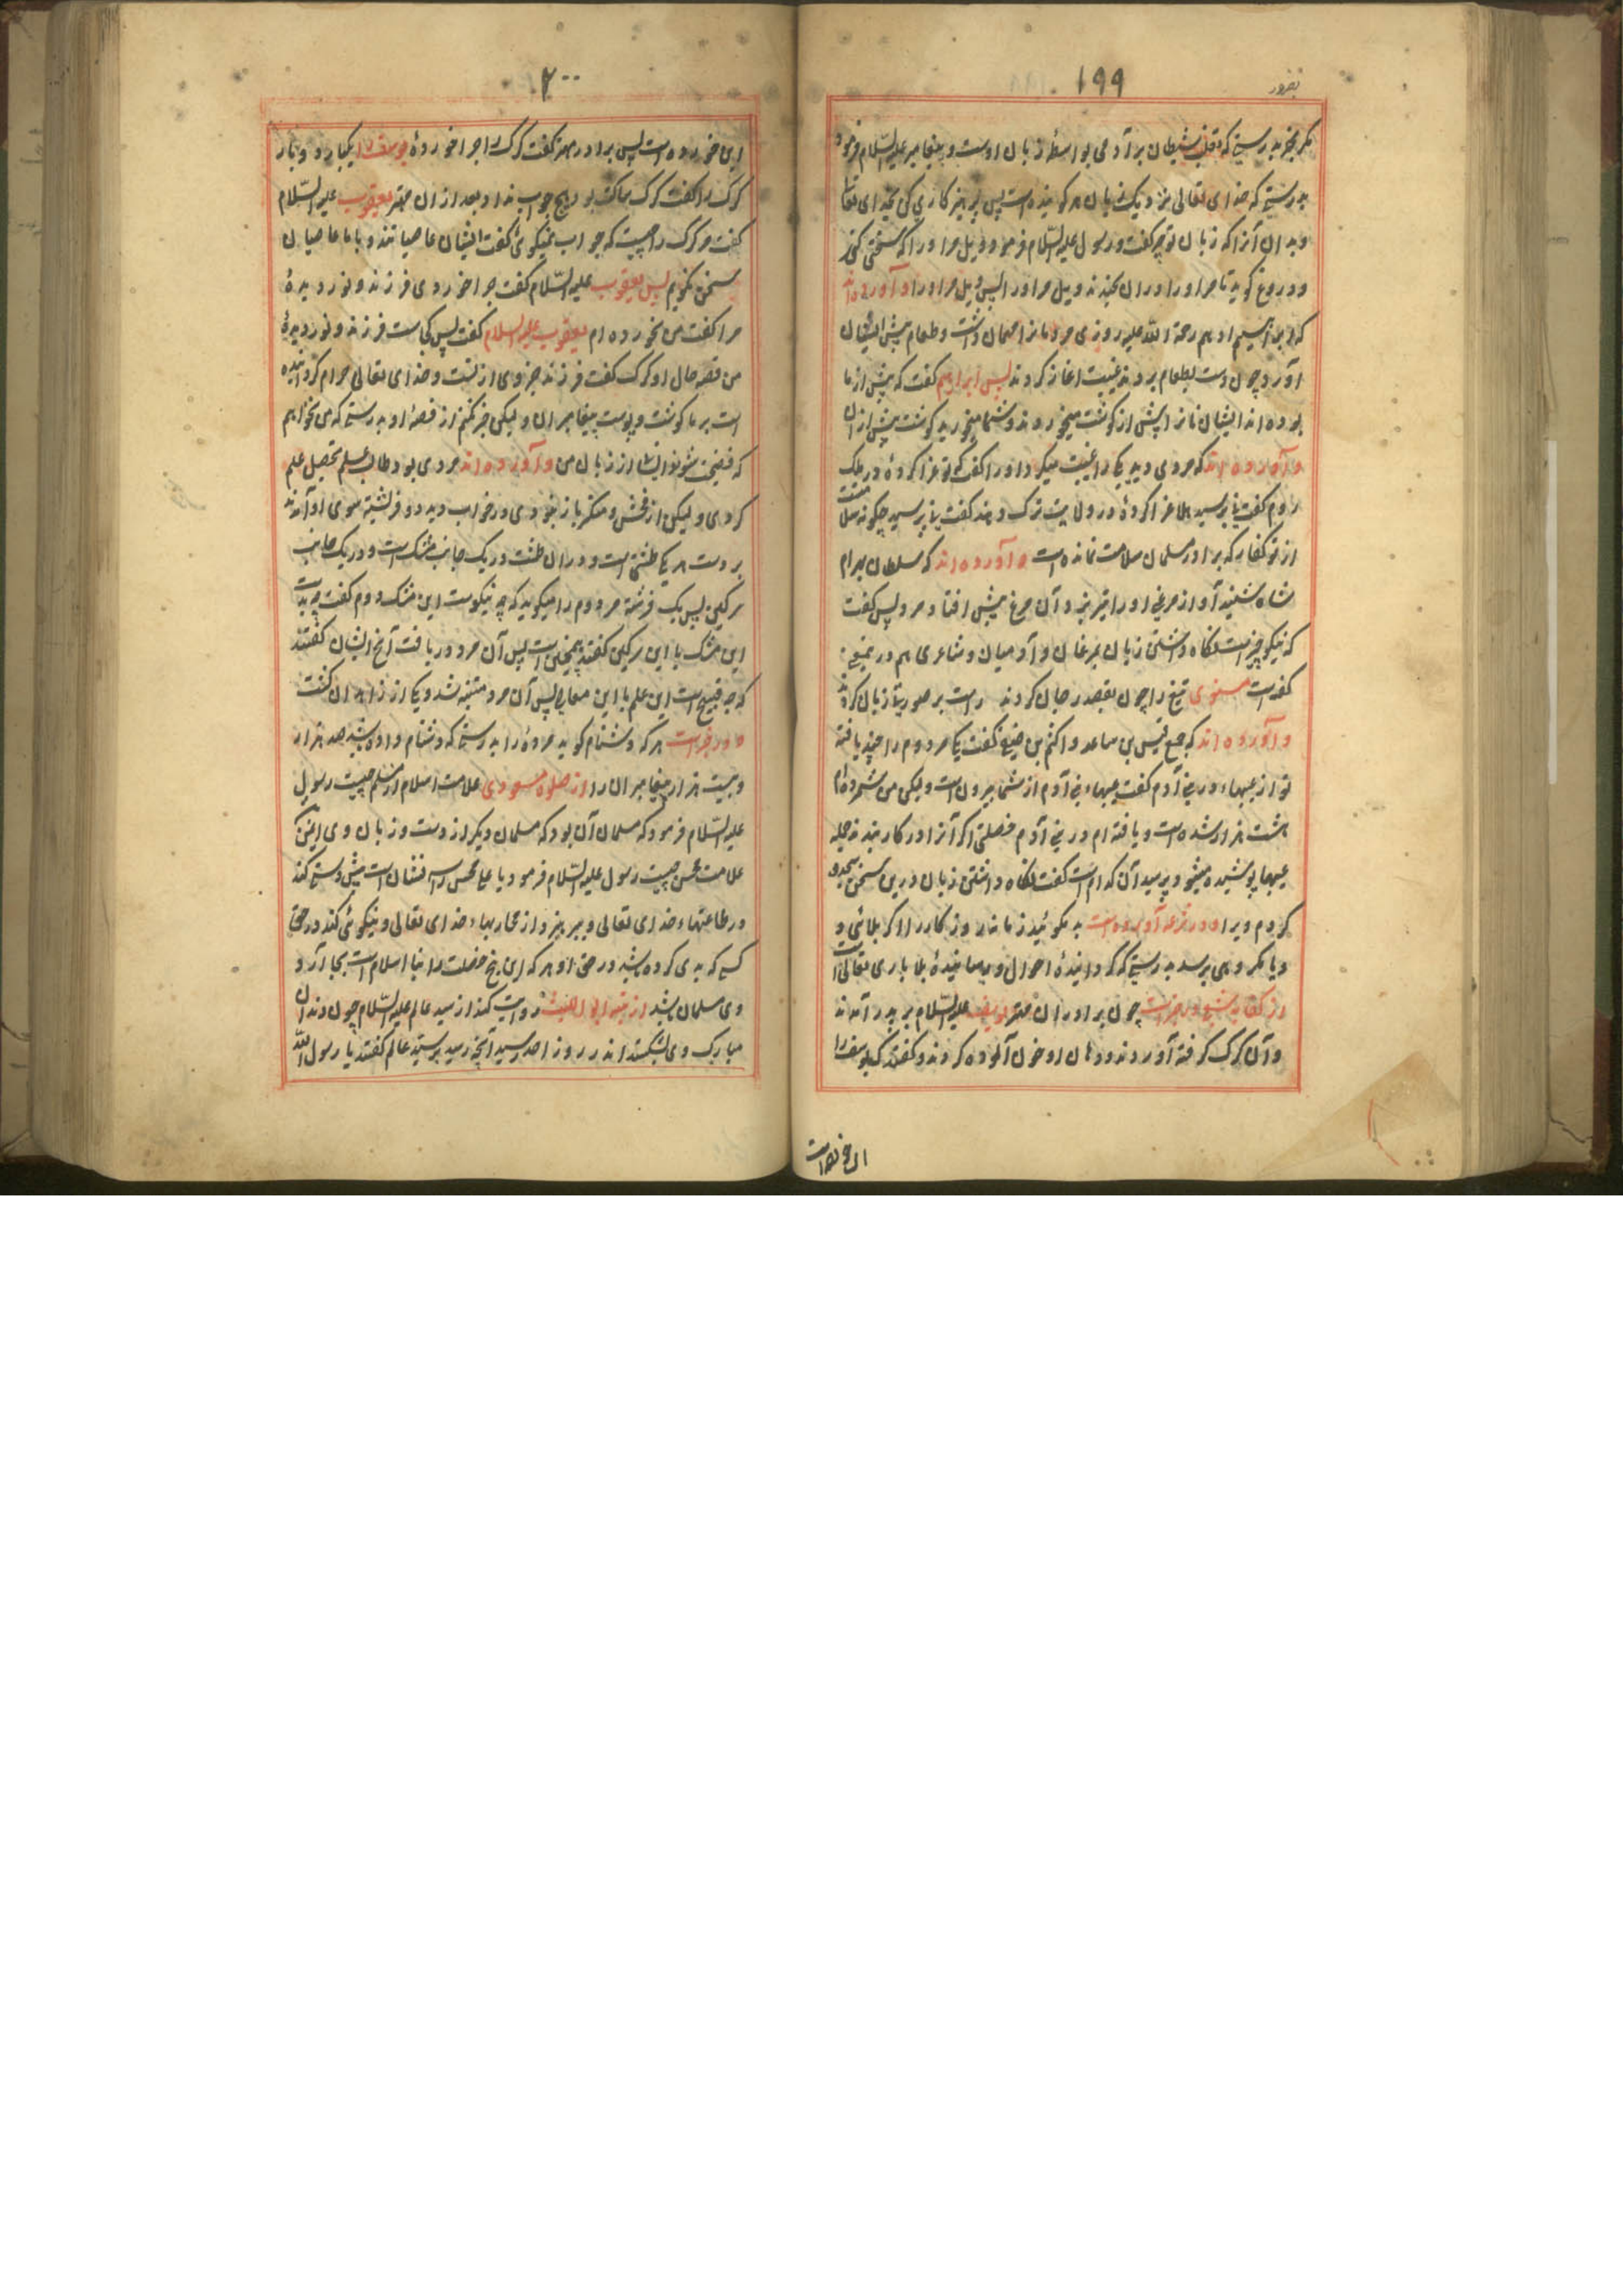 ۱۹۹
مگر بخیر بدرستیکه غلبه شیطان بر آدمی بواسطهٔ زبان اوست و پیغامبر علیه السلام فرمود
بدرستیکه خدای تعالی نزدیک زبان هر گوینده است پس پرهیزگاری کن بخدای تعالی
و بدان آنرا که زبان تو چه گفت و رسول علیه السلام فرمود ویل مر او را که سخنی کند
و دروغ گوید تا مر او را دران بخندند ویل مر او را پس ویل مر او را و آورده اند
که ابراهیم ادهم رحمة الله علیه روزی مردمانرا مهمان داشت و طعام پیش ایشان
آورد چون دست بطعام بردند غیبت اغاز کردند پس ابراهیم گفت که پیش از ما
بوده اند ایشان نانرا پیش از گوشت میخوردند و شما میخورید گوشت پیش از نان
و آورده اند که مردی دید یکی را غیبت میکرد او را گفت که تو غزا کردهٔ در ملک
روم گفت نی پرسید هلا غزا کردهٔ در ولایت ترک و هند گفت نی پرسید چگونه سلامتست
از تو کفار که برادر مسلمان سلامت نمانده است و آورده اند که سلطان بهرام
شاه شنید آواز مرغی او را تیر زد و آن مرغ پیش افتاد مرد پس گفت
که نیکو چیزیست نگاه داشتن زبان بمرغان و آدمیان و شاعری هم درین معنی
گفته است مثنوی تیغ را چون بقصد رجال کردند راست بر صورت زبان کردند
و آورده اند که جمع قیس بن ساعد و اکثم بن صیفی گفت یکی مر دوم را چند یافتهٔ
تو از عیبها در بنی آدم گفت عیبهاء بنی آدم از شمار بیرون است ولیکن من شمرده ام
هشت هزار شده است و یافته ام در بنی آدم خصلتی اگر آنرا در کار بندند جمله
عیبها پوشیده میشود پرسید آن کدام است گفت نگاه داشتن زبان درین سخن سجود
کردم ویرا و در شرعه آورده است بد مگوئید زمانه را و روزگار را اگر بلائی و
و یا مکروهی برسد بدرستیکه گردانیدهٔ احوال و رسانیدهٔ بلا باری تعالی است
از کفایه شعبی در خبر است چون برادران مهتر یوسف علیه السلام بر پدر آمدند
و آن گرگ گرفته آوردند و دهان او خون آلوده کردند و گفتند که یوسف را
۲۰۰
این خورده است پس برادر مهتر گفت گرگ را چرا خوردهٔ یوسف را یکبار و دوبار
گرگ را گفت گرگ ساکت بود هیچ جواب نداد بعد ازان مهتر یعقوب علیه السلام
گفت مر گرگ را چیست که جواب نمیگوئی گفت ایشان عاصیانند و با ما عاصیان
سخن نگویم پس یعقوب علیه السلام گفت چرا خوردی فرزند و نور دیدهٔ
مرا گفت من نخورده ام یعقوب علیه السلام گفت پس کجاست فرزند و نور دیدهٔ
من قصه حال او گرگ گفت فرزند جزوی از تست و خدای تعالی حرام گردانیده
است بر ما گوشت و پوست پیغامبران ولیکن خبر نکنم از قصهٔ او بدرستیکه می نخواهم
که فضیحت شوند ایشان از زبان من و آورده اند مردی بود طالب علم تحصیل علم
کردی ولیکن از فحش و منکر باز نبودی در خواب دید دو فرشته سوی او آمدند
بر دست هر یکی طشتی است و دران طشت در یک جانب مشک است و در یک جانب
سرگین پس یک فرشته مر دوم را میگوید که چه نیکوست این مشک دوم گفت چه بدست
این مشک با این سرگین گفتند همچنین است پس آن مرد دریافت آنچ ایشان گفتند
که چه قبیح است این علم با این معاصی پس آن مرد متنبه شد و یکی از زاهدان گفت
و در خبر است هر که دشنام گوید مردهٔ را بدرستیکه دشنام داده باشد صد هزار
و بیست هزار پیغامبران را از صلوة مسعودی علامت اسلام از مسلم چیست رسول
علیه السلام فرمود که مسلمان آن بود که مسلمان دیگر از دست و زبان وی ایمن
علامت محسن چیست رسول علیه السلام فرمود یا علی محسن را سه نشان است پیش دستی کند
در طاعتهاء خدای تعالی و بپرهیزد از محاربهاء خدای تعالی و نیکوئی کند در حق
کسی که بدی کرده باشد در حق او هر که این پنج خصلت را بجا آرد
وی مسلمان باشد از تنبیه ابو اللیث روایت کنند از سید عالم علیه السلام چون دندان
مبارک وی بشکستند اندر روز احد رسید آنچه رسید پرسیدند عالم گفتند یا رسول الله